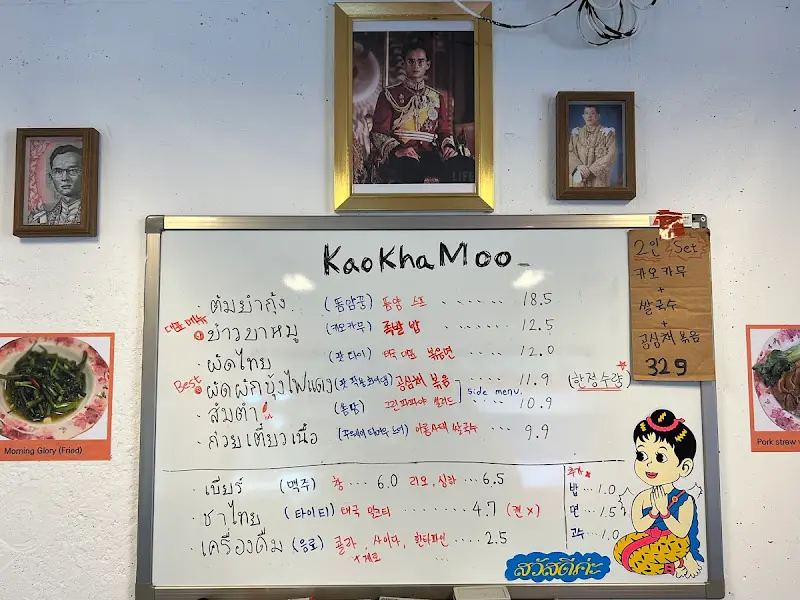 LIFE
KaoKhaMoo
· ต้มยำกุ้ง (똠얌꿍) 똠얌 스프 ······ 18.5
대표메뉴
· ข้าวขาหมู (카오카무) 족발 밥 ······ 12.5
· ผัดไทย (팟타이) 태국 대표 볶음면 ···· 12.0
Best
· ผัดผักบุ้งไฟแดง 공심채 볶음 ···· 11.9 (한정수량)
side menu
· ส้มตำ (쏨땀) 그린파파야 샐러드 ···· 10.9
· ก๋วยเตี๋ยวเนื้อ 쌀국수 ··· 9.9
· เบียร์ (맥주) 창 ··· 6.0 리오, 싱하 ··· 6.5
· ชาไทย (타이티) 태국 밀크티 ······· 4.7 (캔 X)
· เครื่องดื่ม (음료) 콜라, 사이다, 환타파인 ···· 2.5
+제로
추가
밥 ··· 1.0
면 ··· 1.5
고수 ··· 1.0
สวัสดีค่ะ
2인 Set
카오카무
+
쌀국수
+
공심채 볶음
32.9
Morning Glory (Fried)
Pork strew